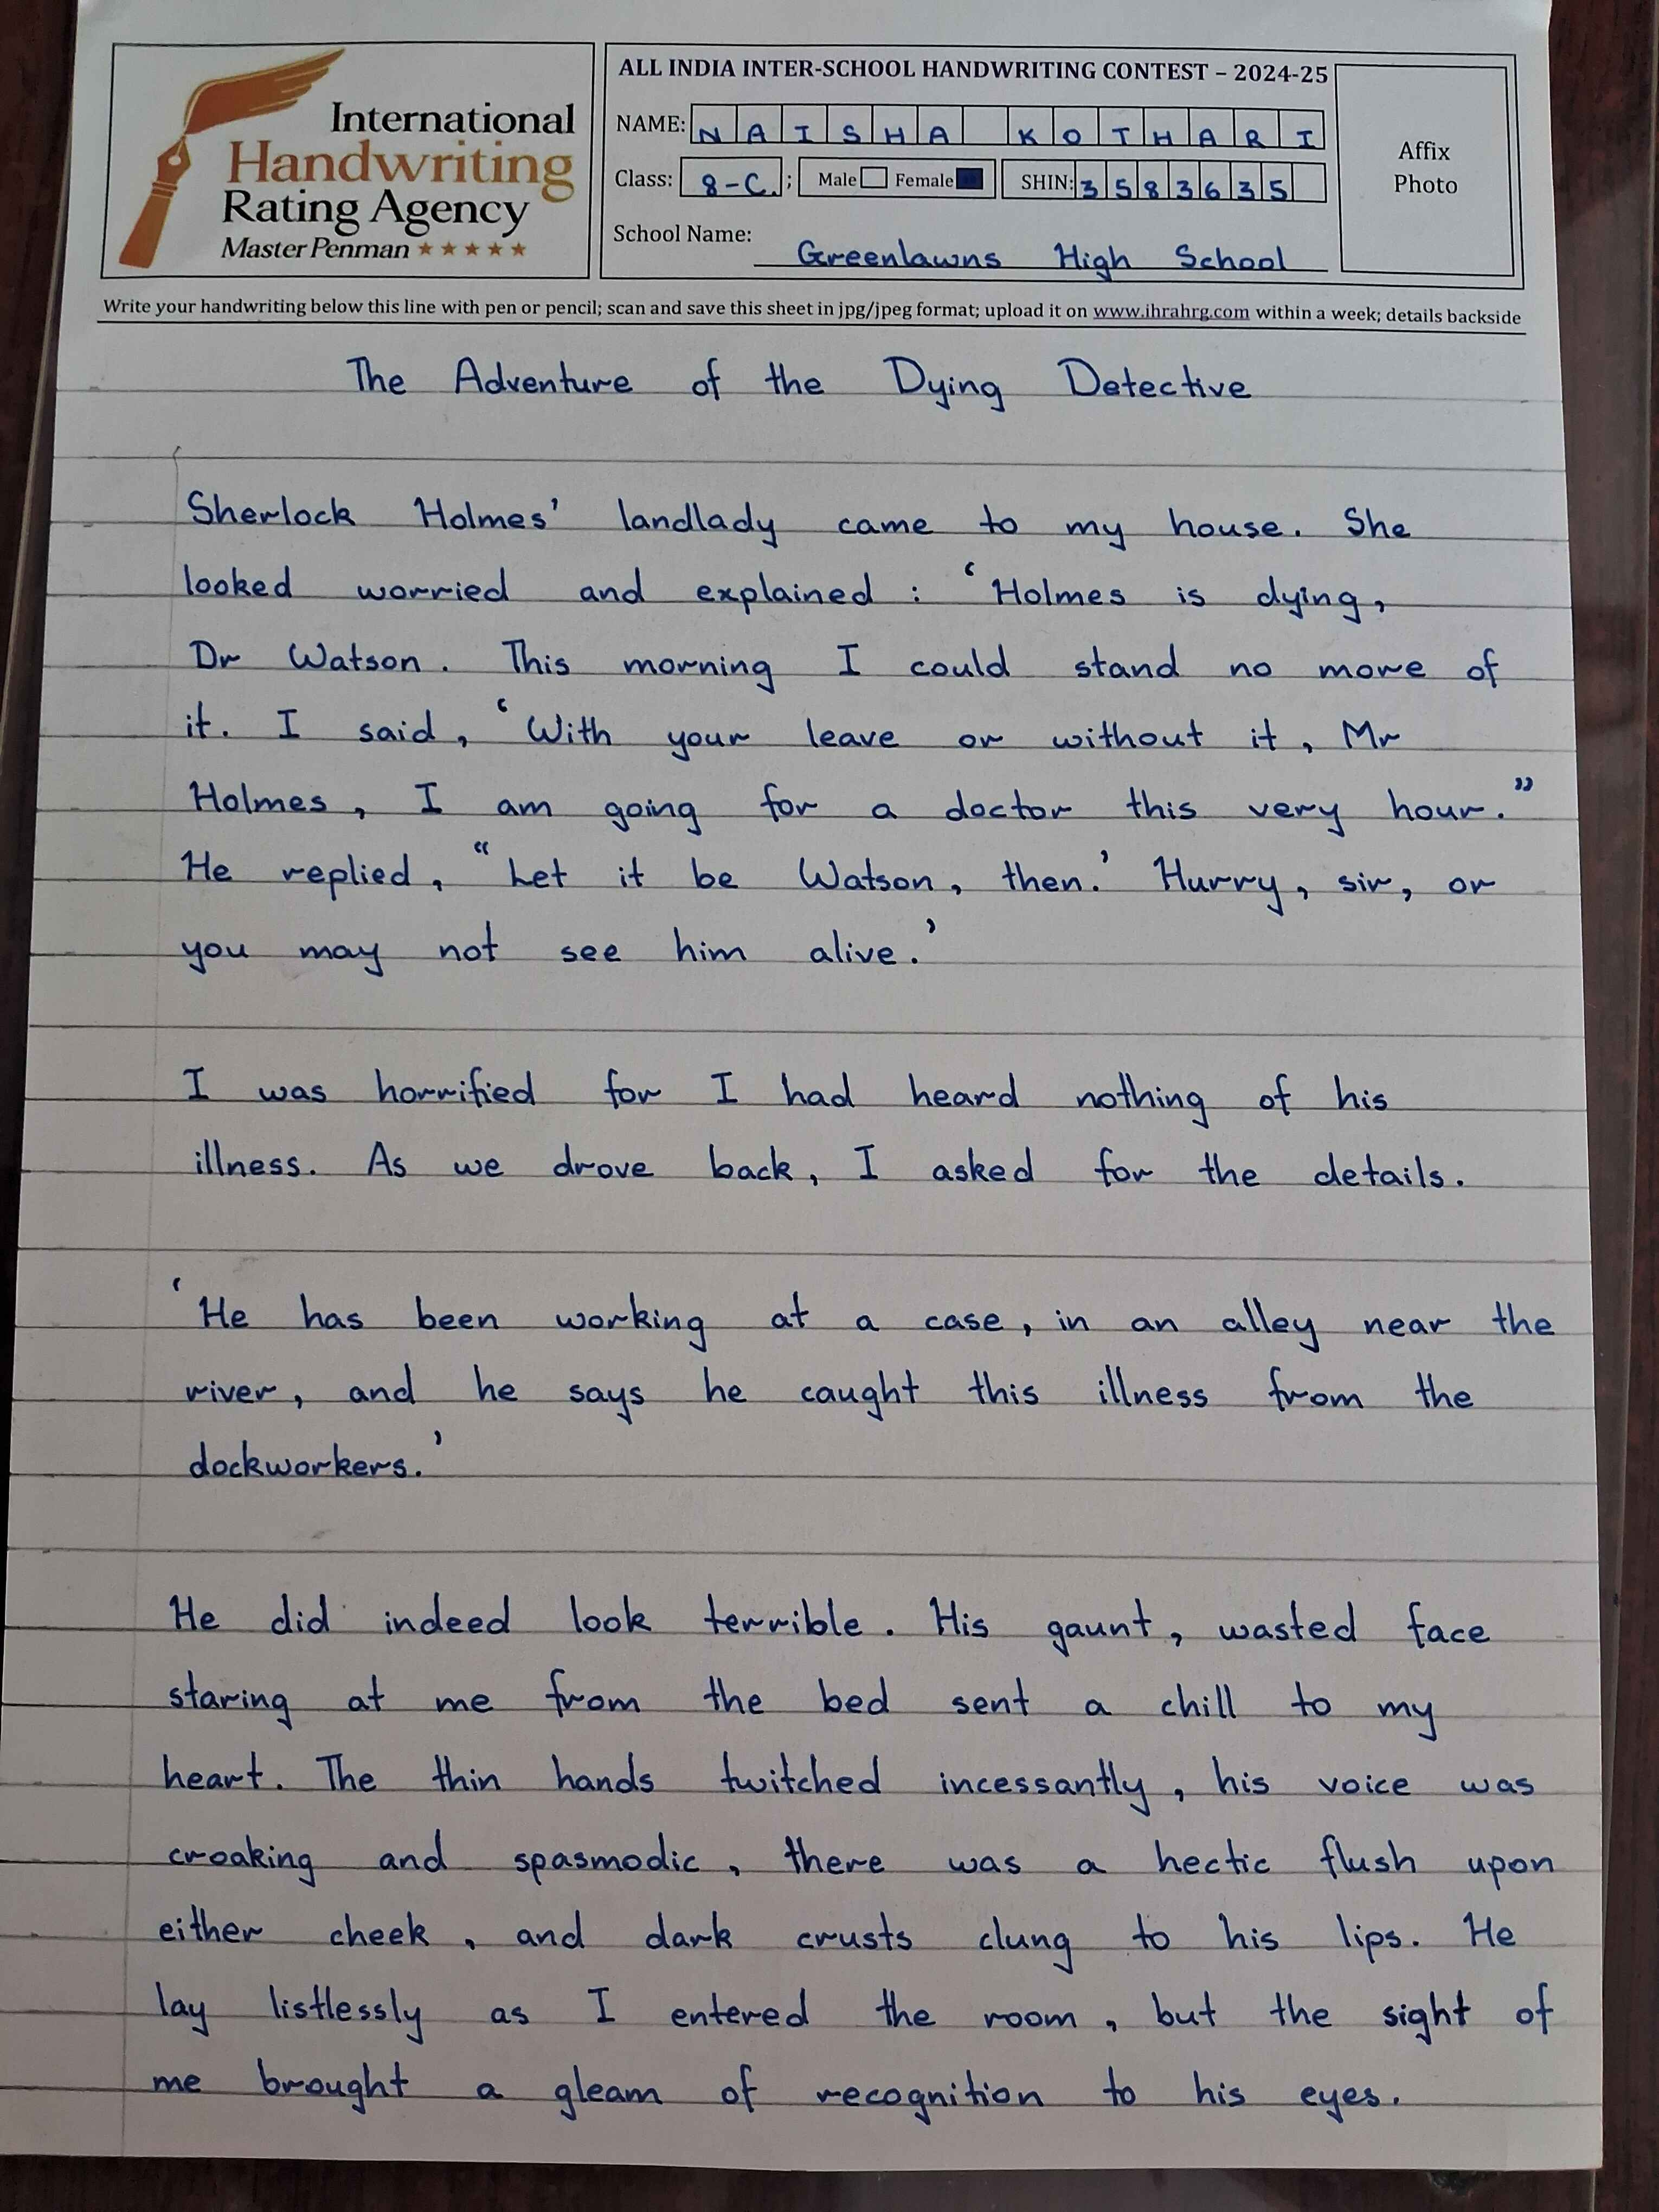 International
Handwriting
Rating Agency
Master Penman ★★★★★
ALL INDIA INTER-SCHOOL HANDWRITING CONTEST – 2024-25
NAME: NAISHA KOTHARI
Class: 8-C. ; Male Female SHIN: 3583635
School Name: Greenlawns High School
Affix
Photo
Write your handwriting below this line with pen or pencil; scan and save this sheet in jpg/jpeg format; upload it on www.ihrahrg.com within a week; details backside
The Adventure of the Dying Detective
Sherlock Holmes' landlady came to my house. She
looked worried and explained : ‘Holmes is dying,
Dr Watson. This morning I could stand no more of
it. I said, ‘With your leave or without it, Mr
Holmes, I am going for a doctor this very hour.”
He replied, “Let it be Watson, then.’ Hurry, sir, or
you may not see him alive.’
I was horrified for I had heard nothing of his
illness. As we drove back, I asked for the details.
‘He has been working at a case, in an alley near the
river, and he says he caught this illness from the
dockworkers.’
He did indeed look terrible. His gaunt, wasted face
staring at me from the bed sent a chill to my
heart. The thin hands twitched incessantly, his voice was
croaking and spasmodic, there was a hectic flush upon
either cheek, and dark crusts clung to his lips. He
lay listlessly as I entered the room, but the sight of
me brought a gleam of recognition to his eyes.